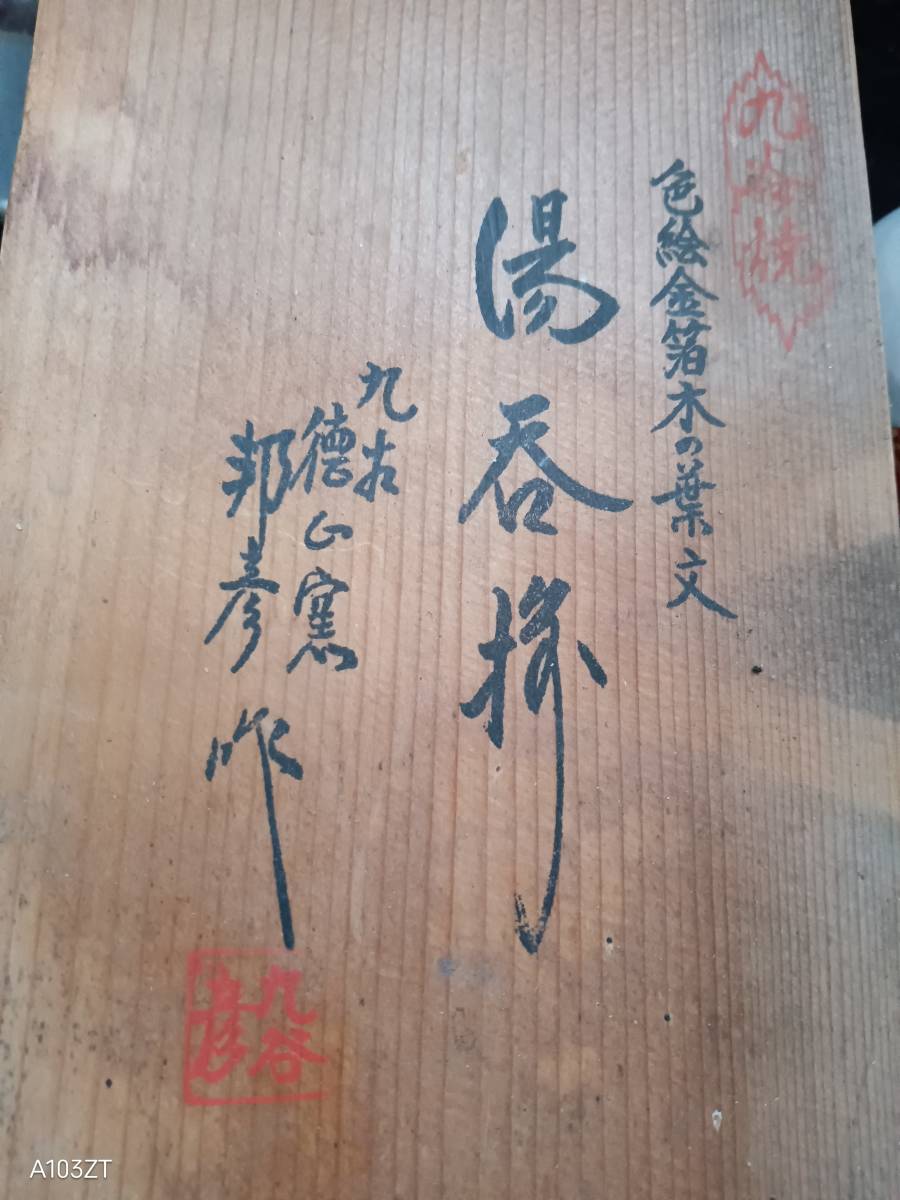 九谷焼
色絵金箔木の葉文
湯呑揃
九谷
徳山窯
邦彦作
九谷
邦彦
A103ZT